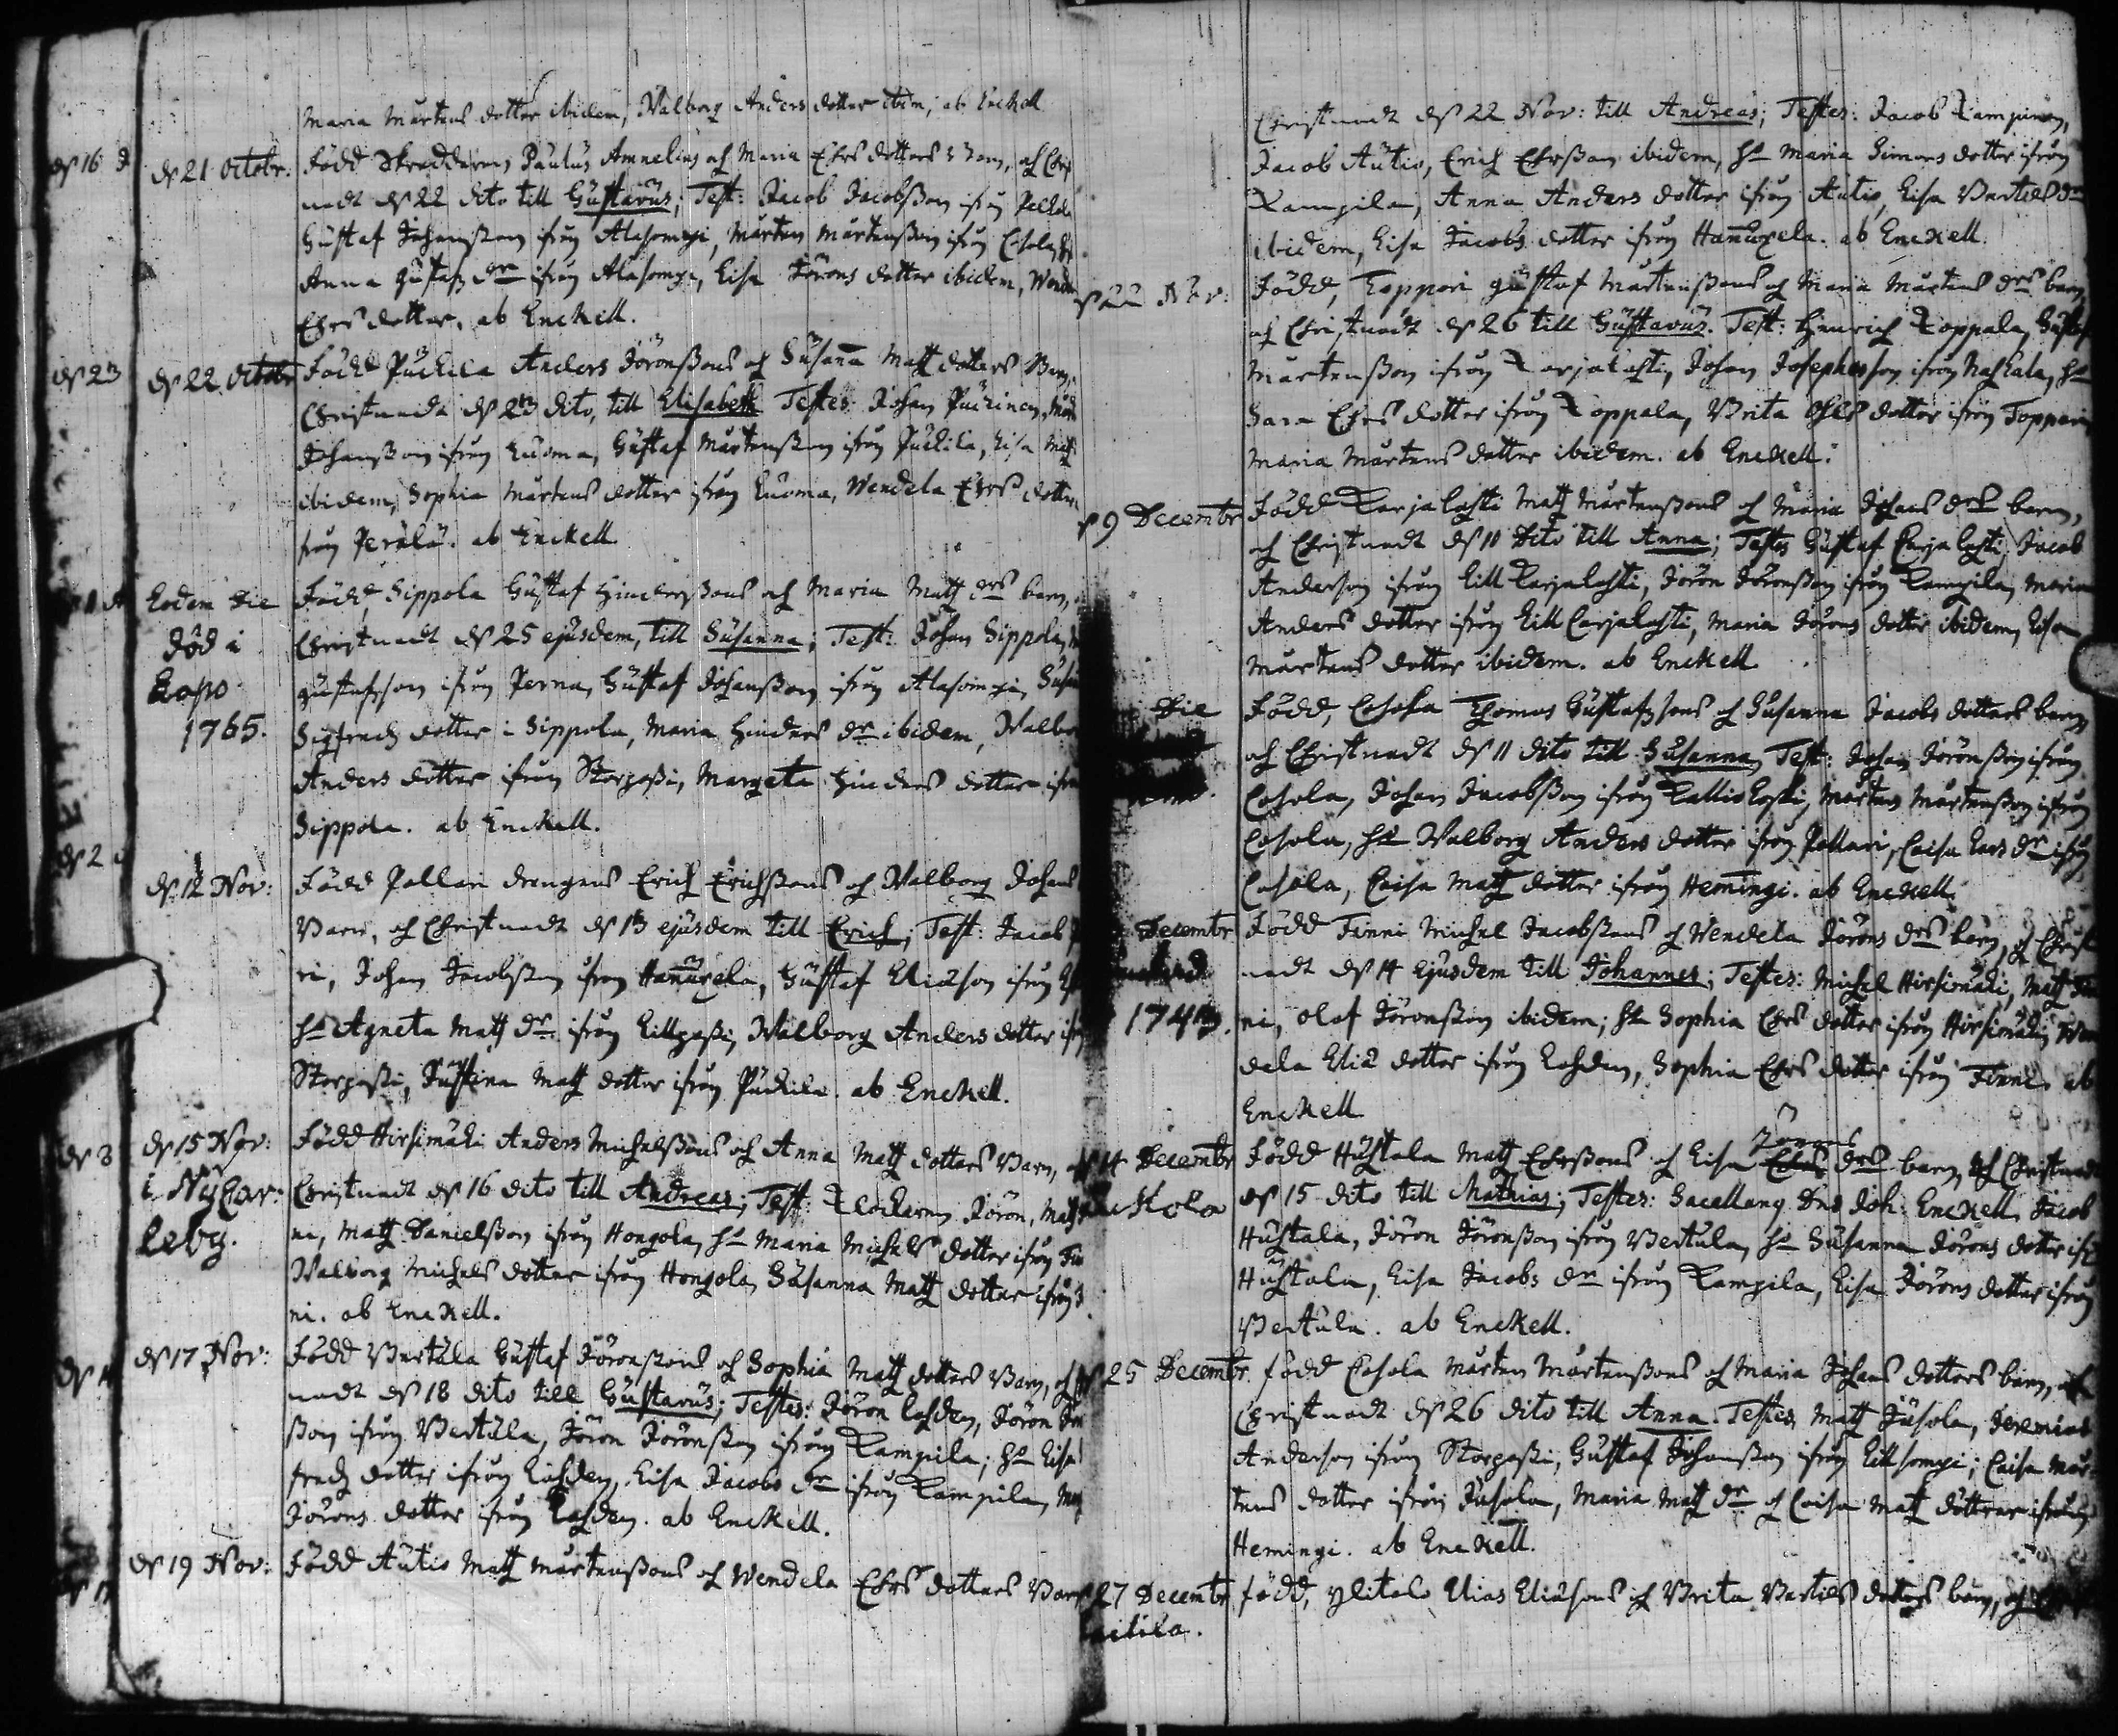 Maria Mårtens dotter ibidem, Walborg Anders dotter ibm, ab Enckell
d 21 Octobr. Född Skreddaren, Paulus Amnelius och Maria Ehrs dotters Barn, och Christ
nadt d 22 dito till Gustavus; Test: Jacob Jacobsson ifrån
Gustaf Johansson ifrån Alasompi, Mårten Mårtensson ifrån Cosola, H:
Anna Gustafs dr ifrån Alasompi, Lisa Jörons dotter ibidem, Wendela
Ehrs dotter. ab Enckell.
d 22 Octobr Född Puckila Anders Jöronssons och Susanna Matts dotters Barn,
Christnadt d 23 dito, till Elisabeth Testes: Johan Puckinen,
Johansson ifrån Luoma, Gustaf Mårtensson ifrån Puckila, Lisa Matts
ibidem, Sophia Mårtens dotter ifrån Luoma, Wendela Ehrs dotter
ifrån Perälä. ab Enckell
Eodem Die Född, Sippola Gustaf Hinderssons och Maria Matts drs barn,
död i Christnadt d 25 ejusdem, till Susanna; Test: Johan Sippola,
Lapo Gustafsson ifrån Perna, Gustaf Johansson ifrån Alasompi,
1765. Sigfreds dotter i Sippola, Maria Hinders dr ibidem, Walborg
Anders dotter ifrån Storpassi, Margeta Hinders dotter ifrån
Sippola. ab Enckell.
d 12 Nov: Född Pollari drengens Erich Erichssons och Walborg Johans
Barn, och Christnadt d 13 ejusdem till Erich; Test: Jacob
ri, Johan Jacobsson ifrån Hannuxela, Gustaf Eliasson ifrån
H: Agneta Matts dr ifrån Lillpassi, Walborg Anders dotter ifrån
Storpassi, Justina Matts dotter ifrån Puckila. ab Enckell.
d 15 Nov: Född Hirsimäki Anders Michelssons och Anna Matts dotters Barn,
i Nykar- Christnadt d 16 dito till Andreas; Test: Klockaren Jöron, Matts
leby. ni, Matts Danielsson ifrån Hongola, H: Maria Michels dotter ifrån
Walborg Michels dotter ifrån Hongola, Susanna Matts dotter ifrån
ni. ab Enckell.
d 17 Nov: Född Vertula Gustaf Jöronssons och Sophia Matts dotters Barn, och
nadt d 18 dito till Gustavus; Testes: Jöron Lahden, Jöron
sson ifrån Vertula, Jöron Jöronsson ifrån Kampila; H: Lisa
freds dotter ifrån Lahden, Lisa Jacobs dr ifrån Kampila,
Jörons dotter ifrån Lahden. ab Enckell.
d 19 Nov: Född Autio Matts Mårtenssons och Wendela Ehrs dotters Barn
Christnadt d 22 Nov: till Andreas; Testes: Jacob Kampinen,
Jacob Autio, Erich Ehrsson ibidem, H: Maria Simons dotter ifrån
Kampila, Anna Anders dotter ifrån Autio, Lisa Bertils dr
ibidem, Lisa Jacobs dotter ifrån Hannuxela. ab Enckell.
Nov: Född, Toppari Gustaf Mårtenssons och Maria Mårtens drs barn,
och Christnadt d 26 till Gustavus. Test: Hinrich Koppala, Gustaf
Mårtensson ifrån Karjalahti, Johan Josephsson ifrån Naskala, H:
Sara Ehrs dotter ifrån Koppala, Brita Ohls dotter ifrån Toppari,
Maria Mårtens dotter ibidem. ab Enckell.
d 9 Decembr Född Karjalahti Matts Mårtenssons och Maria Johans drs barn,
och Christnadt d 11 dito till Anna; Testes Gustaf Carjalahti, Jacob
Andersson ifrån Lill Karjalahti, Jöron Jöronsson ifrån Kampila, Maria
Anders dotter ifrån Lill Carjalahti, Maria Jörons dotter ibidem, Lisa
Mårtens dotter ibidem. ab Enckell.
Die Född, Cosola Thomas Gustafssons och Susanna Jacobs dotters barn,
och Christnadt d 11 dito till Susanna, Test: Johan Jöronsson ifrån
Cosola, Johan Jacobsson ifrån Kalliokoski, Mårten Mårtensson ifrån
Cosola, H: Walborg Anders dotter ifrån Pollari, Caisa Lars dr ifrån
Cosola, Caisa Matts dotter ifrån Hemmingi. ab Enckell.
Decembr Född Finni Michel Jacobssons och Wendela Jörons drs barn, och Christ
nadt d 14 ejusdem till Johannes; Testes: Michel Hirsimäki, Matts Fin
1743. ni, Olof Jöronsson ibidem; H: Sophia Ehrs dotter ifrån Hirsimäki, Wen
dela Eliä dotter ifrån Lahden, Sophia Ehrs dotter ifrån Finni. ab
Enckell
Jörons
d 14 Decembr Född Huhtala Matts Ehrssons och Lisa Ehrs drs barn, och Christnadt
d 15 dito till Mathias; Testes: Sacellang Dns Joh: Enckell, Jacob
Huhtala, Jöron Jöronsson ifrån Vertula, H: Susanna Jörons dotter ifr
Huhtala, Lisa Jacobs dr ifrån Kampila, Lisa Jörons dotter ifrån
Vertula. ab Enckell.
d 25 Decembr. född Cosola Mårten Mårtenssons och Maria Johans dotters barn, och
Christnadt d 26 dito till Anna. Testes Matts Jusola, Jeremias
Andersson ifrån Storpassi, Gustaf Johansson ifrån Lillsompi; Caisa Mår-
tens dotter ifrån Jusola, Maria Matts dr och Caisa Matts dötterar ifrån
Hemmingi. ab Enckell.
d 27 Decembr född, Ylitalo Elias Eliassons och Brita Bertils dotters barn, och